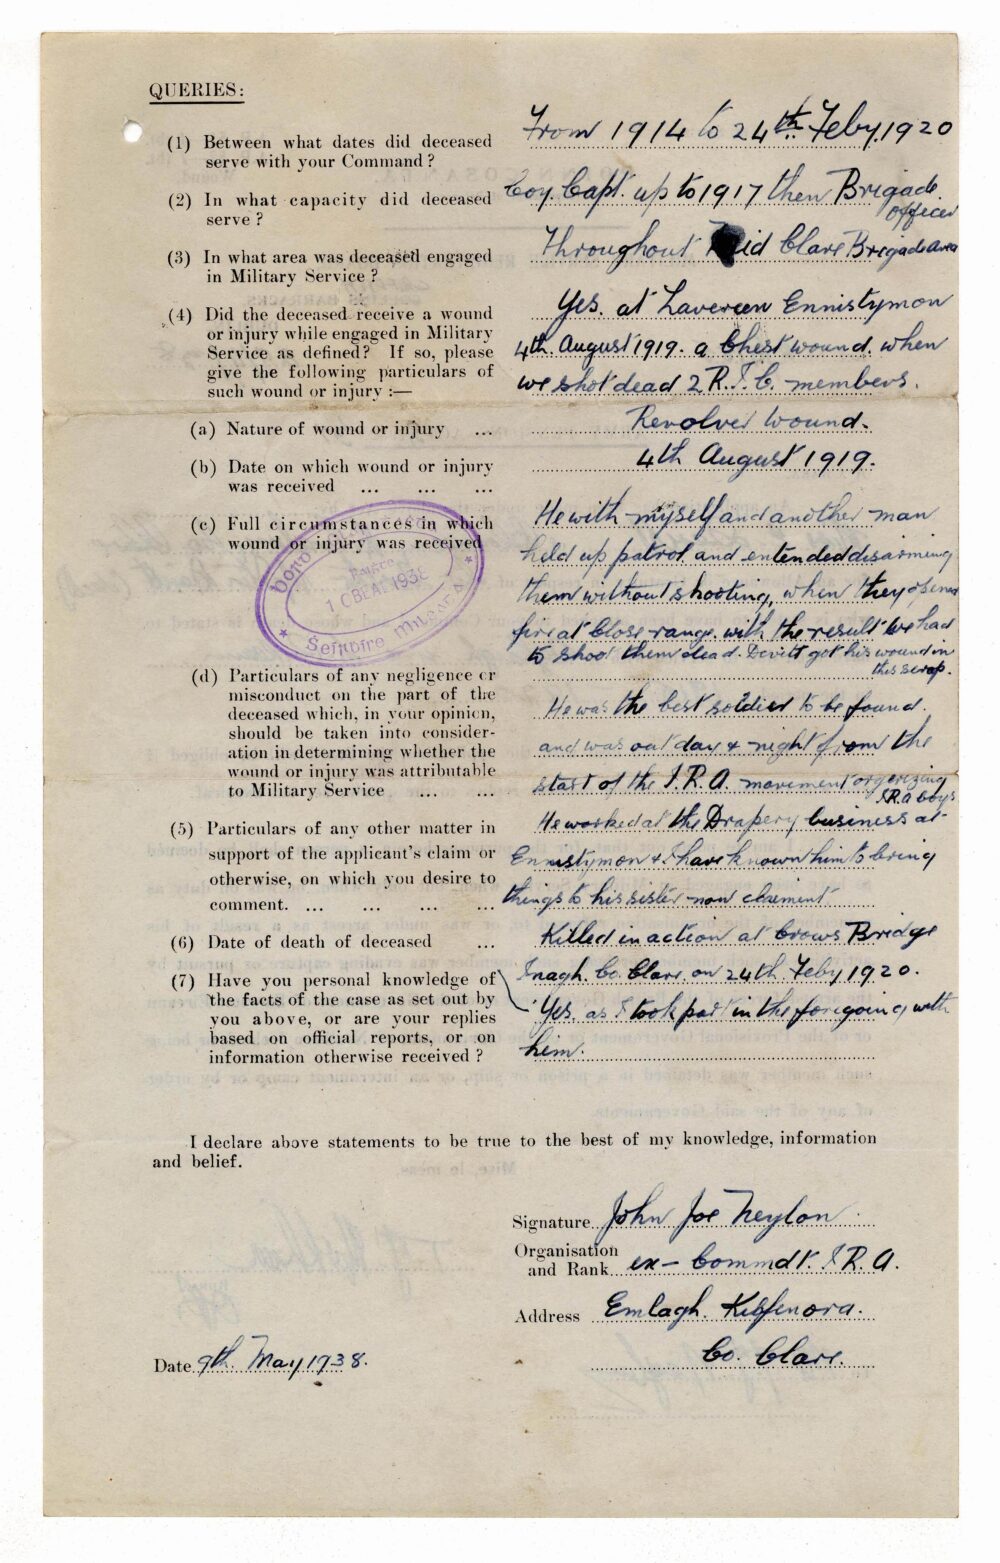 QUERIES:
(1) Between what dates did deceased
serve with your Command?
From 1914 to 24th Feby. 1920
(2) In what capacity did deceased
serve?
Coy. Capt. up to 1917 then Brigade
officer
(3) In what area was deceased engaged
in Military Service?
Throughout Mid Clare Brigade area
(4) Did the deceased receive a wound
or injury while engaged in Military
Service as defined? If so, please
give the following particulars of
such wound or injury :—
Yes. at Lavereen Ennistymon
4th. August 1919. a Chest wound. when
we shot dead 2 R.I.C. members.
(a) Nature of wound or injury ...
Revolver wound.
(b) Date on which wound or injury
was received ... ... ...
4th August 1919.
(c) Full circumstances in which
wound or injury was received
He with myself and another man
held up patrol and entended disarming
them without shooting, when they opened
fire at Close range. with the result we had
to shoot them dead. Devitt got his wound in
this scrap.
1938
(d) Particulars of any negligence or
misconduct on the part of the
deceased which, in your opinion,
should be taken into consider-
ation in determining whether the
wound or injury was attributable
to Military Service ... ...
He was the best soldier to be found.
and was out day & night from the
start of the I.R.A. movement orgenizing
I.R.A boys
(5) Particulars of any other matter in
support of the applicant's claim or
otherwise, on which you desire to
comment. ... ... ... ...
He worked at the Drapery business at
Ennistymon & I have known him to bring
things to his sister now claiment
(6) Date of death of deceased ...
Killed in action at Crows Bridge
Inagh. Co. Clare. on 24th. Feby 1920.
(7) Have you personal knowledge of
the facts of the case as set out by
you above, or are your replies
based on official reports, or on
information otherwise received?
Yes. as I took part in the foregoing with
him.
I declare above statements to be true to the best of my knowledge, information
and belief.
Signature John Joe Neylon
Organisation
and Rank ex- Commdt. I.R.A.
Address Emlagh. Kilfenora.
Co. Clare.
Date 9th. May 1938.